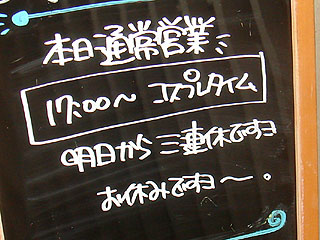 本日通常営業
17:00〜 コスプレタイム
明日から三連休ですヨ
お休みですヨ〜。